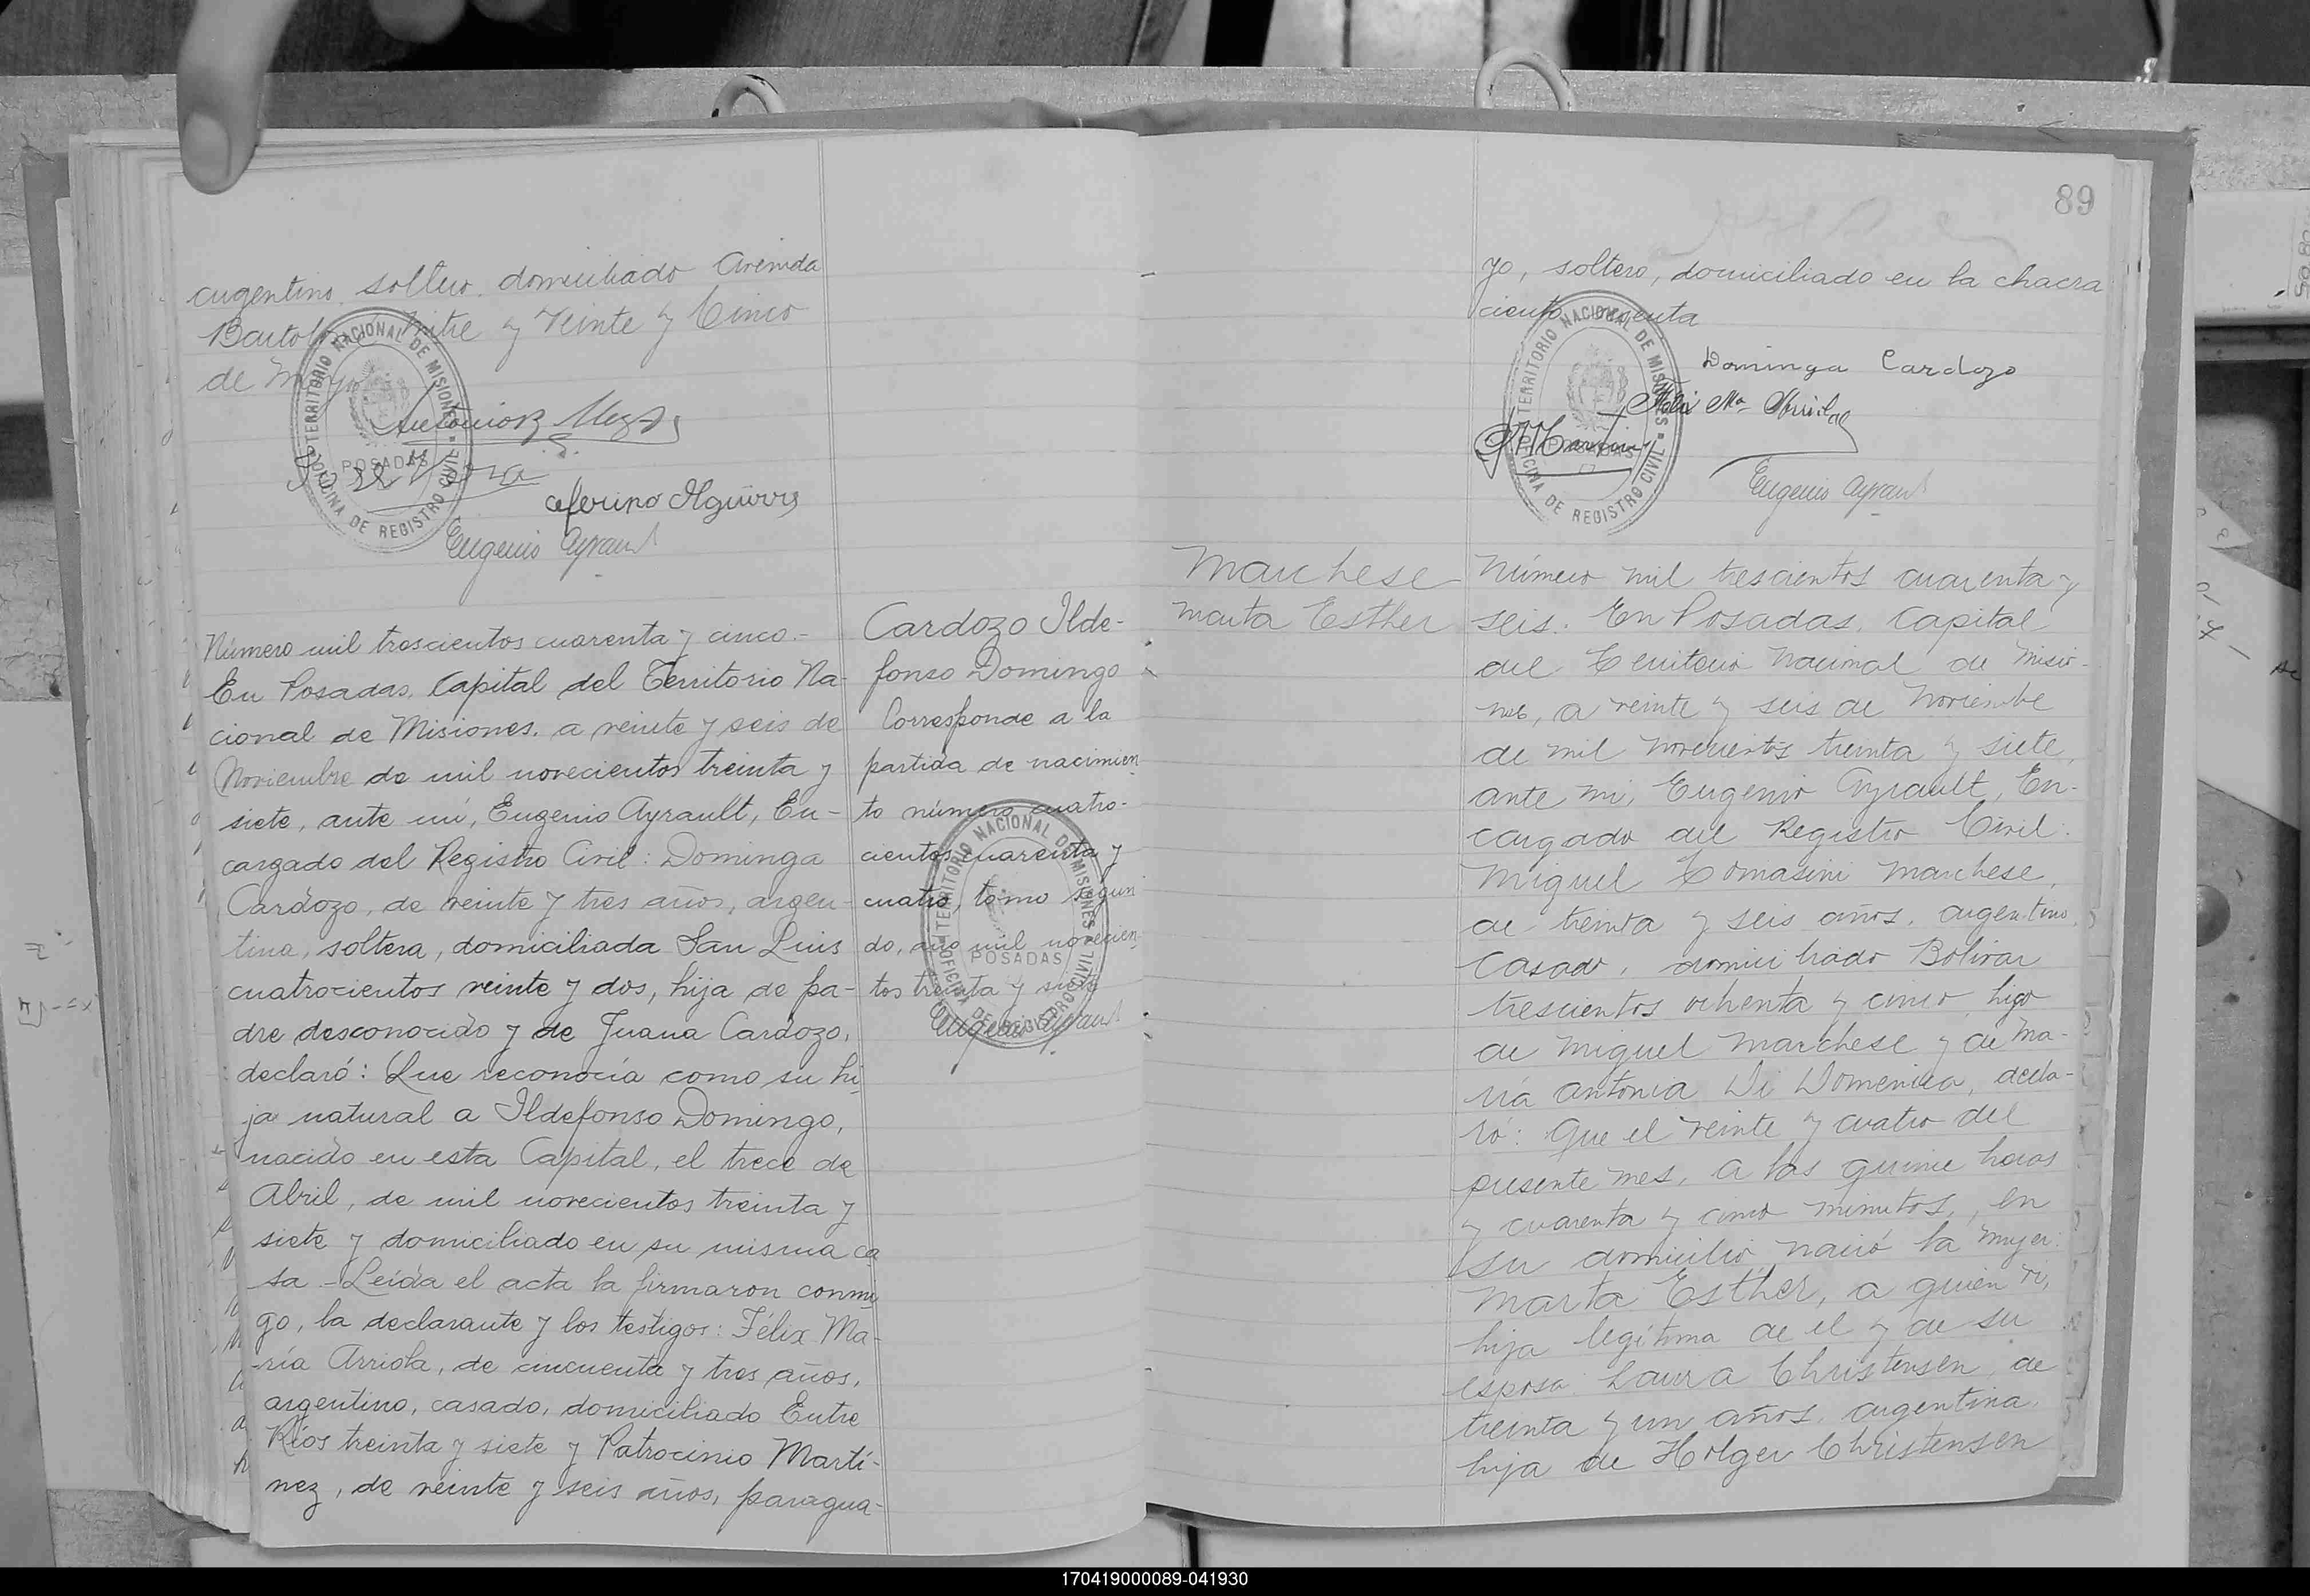 argentino, soltero, domiciliado Avenida
Bartolomé Mitre y Veinte y Cinco
de Mayo
TERRITORIO NACIONAL DE MISIONES
POSADAS
OFICINA DE REGISTRO CIVIL
Eugenio Ayrault
Número mil trescientos cuarenta y cinco.-
En Posadas, Capital del Territorio Na-
cional de Misiones, a veinte y seis de
Noviembre de mil novecientos treinta y
siete, ante mí, Eugenio Ayrault, En-
cargado del Registro Civil: Dominga
Cardozo, de veinte y tres años, argen-
tina, soltera, domiciliada San Luis
cuatrocientos veinte y dos, hija de pa-
dre desconocido y de Juana Cardozo,
declaró: Que reconocía como su hi
ja natural a Ildefonso Domingo,
nacido en esta Capital, el trece de
Abril, de mil novecientos treinta y
siete y domiciliado en su misma ca
sa.-Leída el acta la firmaron conmi
go, la declarante y los testigos: Félix Ma-
ría Arriola, de cincuenta y tres años,
argentino, casado, domiciliado Entre
Ríos treinta y siete y Patrocinio Martí-
nez, de veinte y seis años, paragua-
Cardozo Ilde-
fonso Domingo
Corresponde a la
partida de nacimien
to número cuatro-
cientos cuarenta y
cuatro, tomo segun
do, año mil novecien
tos treinta y siete
Eugenio Ayrault
TERRITORIO NACIONAL DE MISIONES
POSADAS
OFICINA DE REGISTRO CIVIL
89
yo, soltero, domiciliado en la chacra
ciento
TERRITORIO NACIONAL DE MISIONES
POSADAS
OFICINA DE REGISTRO CIVIL
Dominga Cardozo
Eugenio Ayrault
Marchese
Marta Esther
Número mil trescientos cuarenta y
seis. En Posadas, Capital
del Territorio Nacional de Misio-
nes, a veinte y seis de Noviembre
de mil novecientos treinta y siete,
ante mi, Eugenio Ayrault, En-
cargado del Registro Civil:
Miguel Tomasini Marchese,
de treinta y seis años, argentino,
casado, domiciliado Bolivar
trescientos ochenta y cinco, hijo
de Miguel Marchese y de Ma-
ría Antonia Di Domenica, decla-
ró: Que el veinte y cuatro del
presente mes, a las quince horas
y cuarenta y cinco minutos, en
su domicilio nació la mujer:
Marta Esther, a quien vi,
hija legítima de el y de su
esposa Laura Christensen, de
treinta y un años, argentina,
hija de Holger Christensen
170419000089-041930